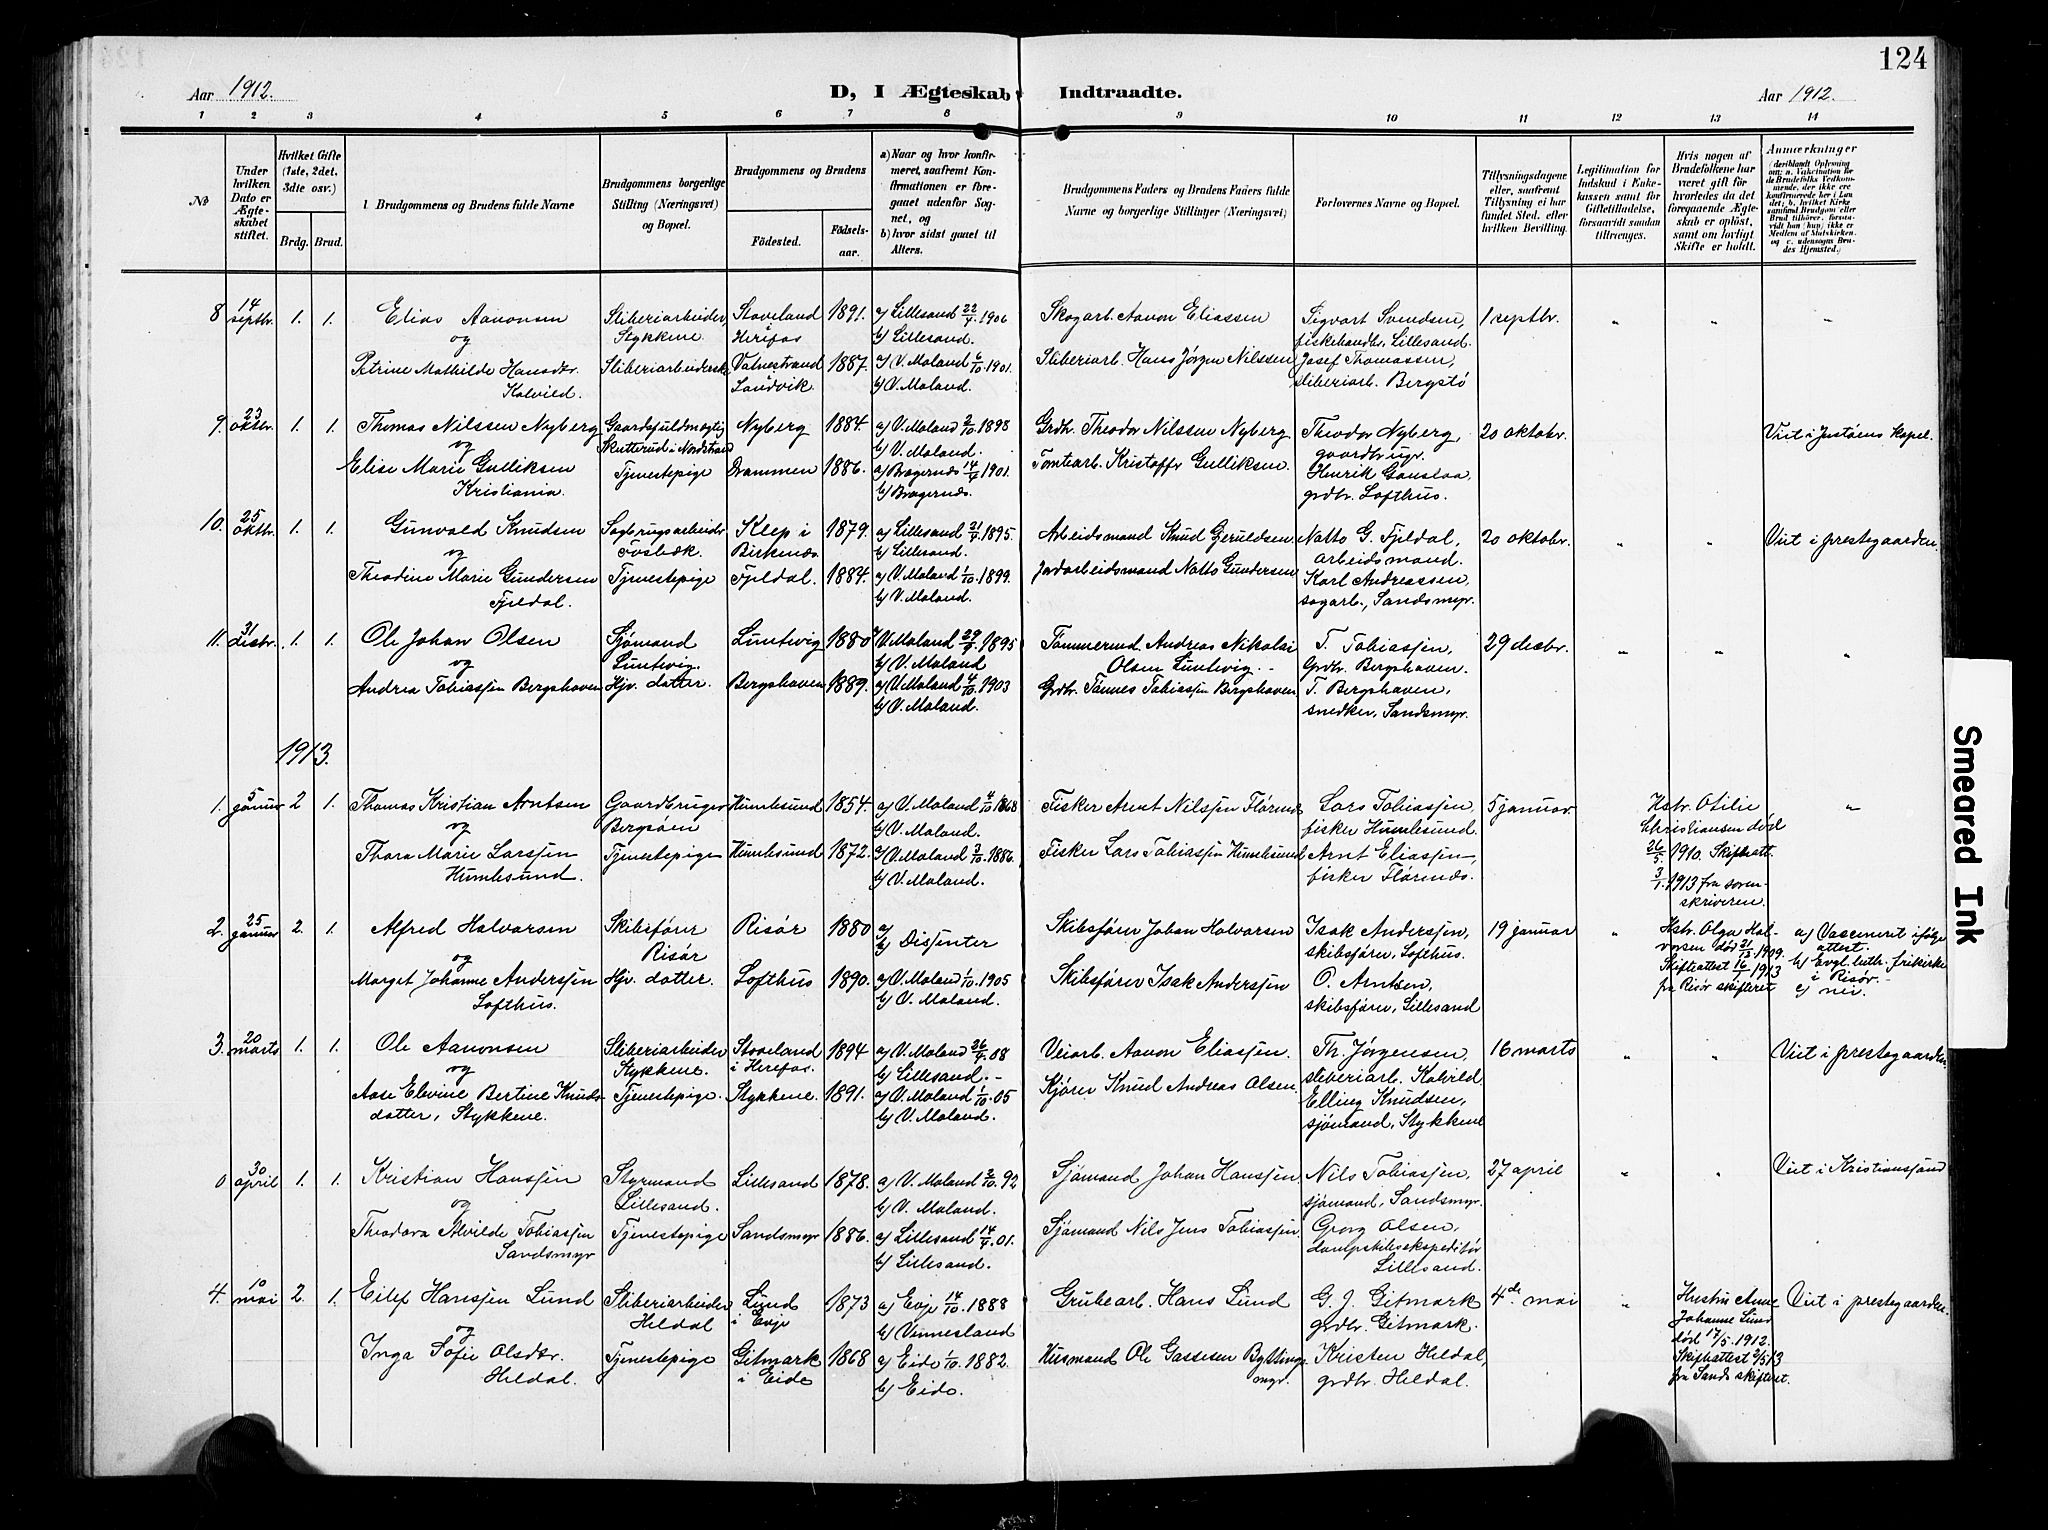 124
Aar 1912.
D, I Ægteskab Indtraadte.
Aar 1912.
1 2 3 4 5 6 7 8 9 10 11 12 13 14
№
Under hvilken Dato er Ægteskabet stiftet.
Hvilket Gifte (1ste, 2det, 3die osv.)
Brdg. Brud.
Brudgommens og Brudens fulde Navne
Brudgommens borgerlige Stilling (Næringsvei) og Bopæl.
Brudgommens og Brudens
Födested. Födselsaar.
a) Naar og hvor konfirmeret, saafremt Konfirmationen er foregaaet udenfor Sognet, og
b) hvor sidst gaaet til Alters.
Brudgommens Faders og Brudens Faders fulde Navne og borgerlige Stillinger (Næringsvei)
Forlovernes Navne og Bopæl.
Tillysningsdagene eller, saafremt Tillysning ei har fundet Sted, efter hvilken Bevilling.
Legitimation for Indskud i Enkekassen samt for Giftetilladelse, forsaavidt saadan tiltrænges.
Hvis nogen af Brudefolkene har været gift för hvorledes da det foregaaende Ægteskab er oplöst, samt om lovligt Skifte er holdt.
Anmærkninger
8 14 septbr. 1. 1. Elias Aanonsen Sliberiarbeider, Stoveland 1891. a) Lillesand 22/4 1906 Skogarb. Aanon Eliassen Sigvart Svendsen, 1 septbr. " " "
og Stykkene Herefos b) Lillesand. fiskehandler, Lillesand.
Petrine Mathilde Hansdtr. Sliberiarbeiderske Vatnestrand 1887. a) V. Moland 6/10 1901. Sliberiarb. Hans Jørgen Nilssen Josef Thomassen,
Kalvild. Sandvik b) V. Moland. sliberiarb. Bergstø
9. 23 oktbr. 1. 1. Thomas Nilssen Nyberg Gaardsfuldmægtig Nyberg 1884. a) V. Moland 2/10 1898 Grdbr. Theodor Nilssen Nyberg Theodor Nyberg, 20 oktobr. Viet i Justøens kapel.
og Skutterud i Nordstrand b) V. Moland. gaardbruger
Elise Marie Gulliksen Tjenestepige Drammen 1886. a) Bragernes 14/4 1901. Tomtearb. Kristoffer Gulliksen. Henrik
Kristiania. b) Bragernes. grdbr. Lofthus.
10. 25 oktbr. 1. 1. Gunvald Knudsen Sagbrugsarbeider Klep i 1879. a) Lillesand 21/4 1895. Arbeidsmand Knud Gjeruldsen Natto G. Fjeldal, 20 oktobr. " " Viet i prestegaarden.
og Fosbæk. Birkenæs b) Lillesand. arbeidsmand.
Theodine Marie Gundersen Tjenestepige Fjeldal. 1884. a) V. Moland 1/10 1899. Jordarbeidsmand Natto Gundersen Karl Andreassen,
Fjeldal. b) V. Moland. sagarb., Sandsmyr.
11. 31 decbr. 1. 1. Ole Johan Olsen Sjømand Luntevig 1880 a) V. Moland 29/9 1895 Tømmermd. Andreas Nikolai T. Tobiassen, 29 decbr. " " "
og Luntevig. b) V. Moland Olsen Luntevig. Grdbr. Bergshaven.
Andrea Tobiassen Bergshaven Hjv. datter. Bergshaven 1889. a) V. Moland 4/10 1903 Grdbr. Tønnes Tobiassen Bergshaven T. Bergshaven,
b) V. Moland. snedker, Sandsmyr.
1913.
1. 5 januar 2 1. Thomas Kristian Arntsen Gaardbruger Humlesund 1854. a) V. Moland 4/10 1868 Fisker Arnt Nilssen Flørenæs Lars Tobiassen, 5 januar. Hstr. Otilie "
og Bergsøen b) V. Moland. fisker Humlesund. Christiansen død
Thora Marie Larssen Tjenestepige Humlesund 1872. a) V. Moland 3/10 1886. Fisker Lars Tobiassen Humlesund Arnt Eliassen, 26/5 1910. Skifteatt.
Humlesund. b) V. Moland. fisker Flørenæs. 3/1 1913 fra sorenskriveren.
2. 25 januar 2. 1. Alfred Halvorsen Skibsfører Risør 1880 a) b) Dissenter Skibsfører Johan Halvorsen Isak Anderssen, 19 januar " Hstr. Olga Halvorsen død 21/12 1909. a) Vaccineret ifølge attest.
og Risør skibsfører, Lofthus. Skifteattest 16/1 1913 b) Evgl. luth. frikirke i Risør.
Marget Johanne Anderssen Hjv. datter. Lofthus 1890. a) V. Moland 1/10 1905 Skibsfører Isak Anderssen O. Arntsen, fra Risør skifteret c) nei.
Lofthus. b) V. Moland. skibsfører, Lillesand
3. 20 marts 1. 1. Ole Aanonsen Sliberiarbeider Stoveland 1894 a) V. Moland 26/4 08 Veiarb. Aanon Eliassen. Th. Jørgensen 16 marts " " Viet i prestegaarden.
og Stykkene. i Herefos. b) Lillesand. sliberiarb. Kalvild
Aase Elevine Bertine Knudsdatter, Stykkene. Tjenestepige. Stykkene. 1891. a) V. Moland 1/10 05 Kjører Knud Andreas Olsen. Elling Knudsen,
b) V. Moland. sjømand, Stykkene
0 30 april 1. 1. Kristian Hanssen Styrmand Lillesand 1878. a) V. Moland 2/10 92 Sjømand Johan Hanssen Nils Tobiassen, 27 april " " Viet i Kristianssand
og Lillesand. b) V. Moland. sjømand, Sandsmyr.
Theodora Alvilde Tobiassen Tjenestepige Sandsmyr 1886. a) Lillesand 14/4 01. Sjømand Nils Jens Tobiassen Georg Olsen,
Sandsmyr b) Lillesand. dampskibsekspeditør Lillesand.
4. 10 mai 2. 1. Eilef Hanssen Lund Sliberiarbeider Lund 1873 a) Evje 14/10 1888 Grubearb. Hans Lund G. J. Gitmark 4de mai " Hustru Anne Viet i prestegaarden.
og Heldal i Evje b) Vennesland grdbr. Gitmark. Johanne Lund
Inga Sofie Olsdtr. Tjenestepige Gitmark 1868 a) Eide 1/10 1882. Husmand Ole Gassesen Byttingsmyr. Kristen Heldal, død 17/5 1912.
Heldal. i Eide b) Eide. grdbr. Heldal. Skifteattest 2/5 13
fra Sands skifteret.
Smeared Ink